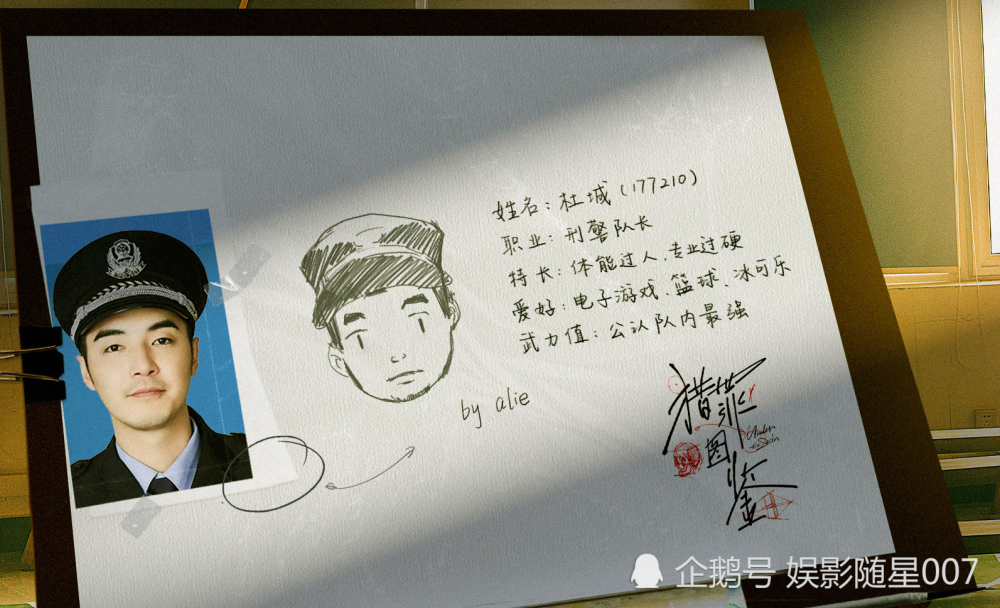 姓名：杜城（177210）
职业：刑警队长
特长：体能过人、专业过硬
爱好：电子游戏、篮球、冰可乐
武力值：公认队内最强
by alie
猎罪图鉴
Under the Skin
企鹅号 娱影随星007